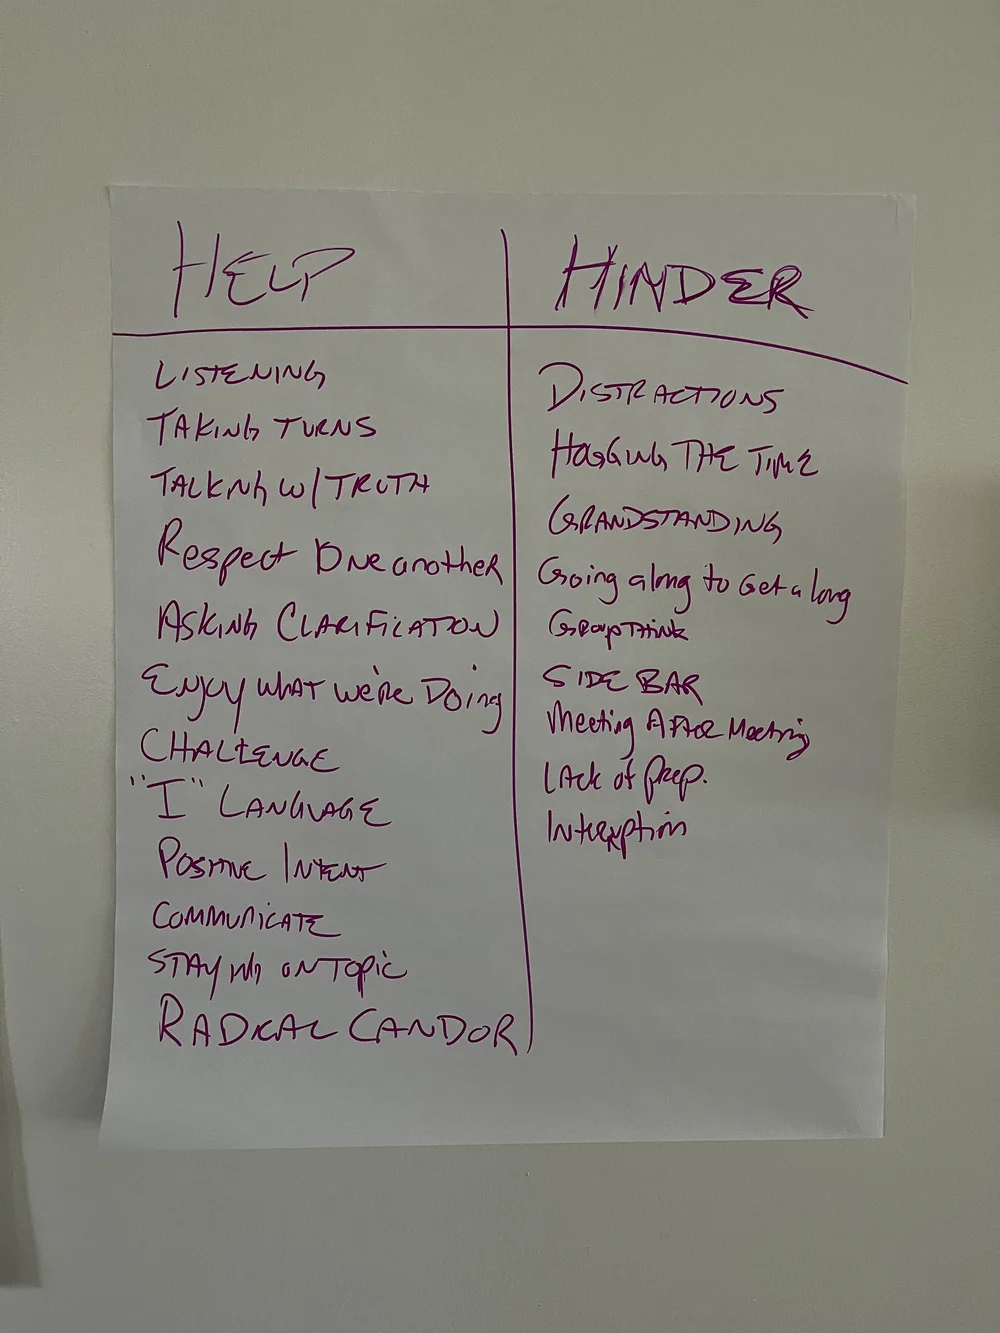 HELP
LISTENING
TAKING TURNS
TALKING W/ TRUTH
Respect One another
ASKING CLARIFICATION
Enjoy WHAT we're Doing
CHALLENGE
"I" LANGUAGE
POSITIVE INTENT
COMMUNICATE
STAYING ON TOPIC
RADICAL CANDOR
HINDER
DISTRACTIONS
HOGGING THE TIME
GRANDSTANDING
Going along to Get along
GROUPTHINK
SIDE BAR
Meeting AFTER Meeting
LACK of prep.
Interuption